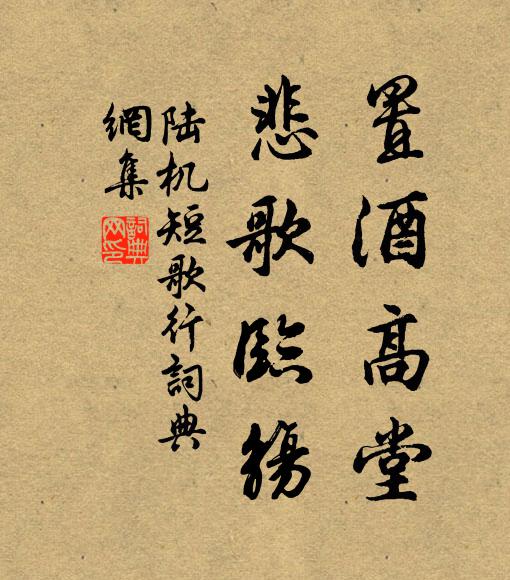 置酒高堂
悲歌臨觴
陆机短歌行詞典
網集
詞典网印